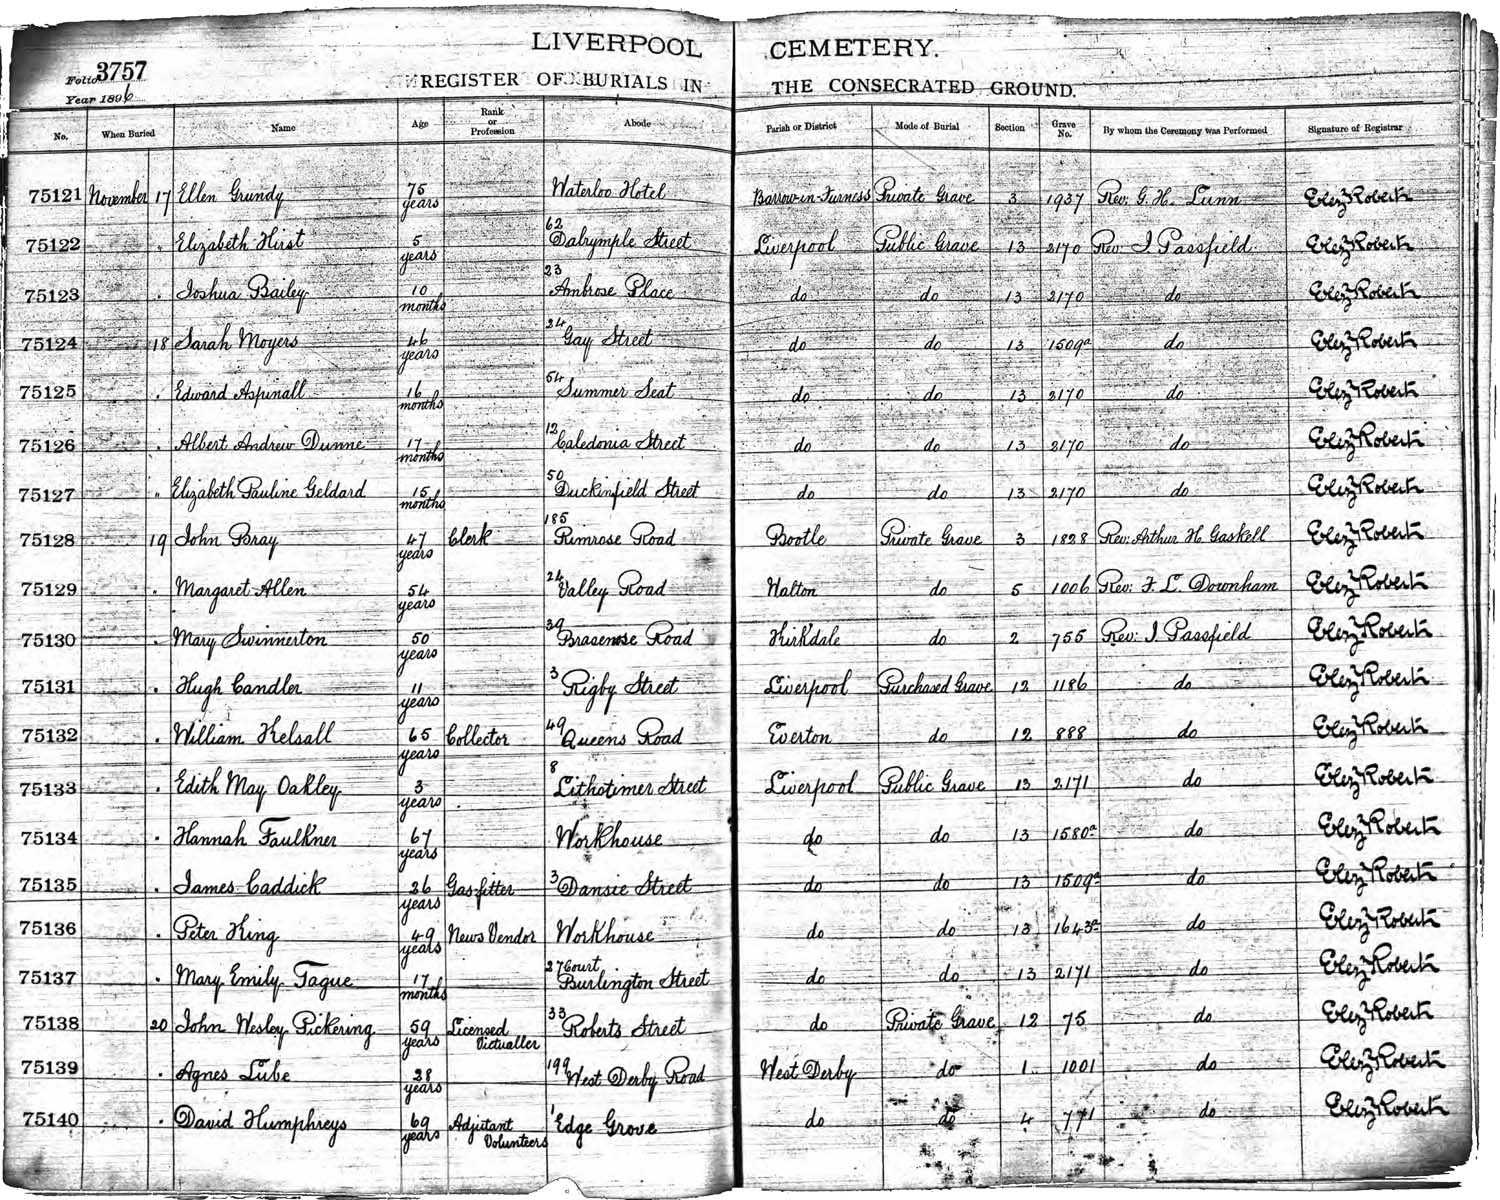 LIVERPOOL CEMETERY.
Folio 3757
REGISTER OF BURIALS IN THE CONSECRATED GROUND.
Year 1896
No. When Buried Name Age Rank or Profession Abode Parish or District Mode of Burial Section Grave No. By whom the Ceremony was Performed Signature of Registrar
75121 November 17 Ellen Grundy 75 years Waterloo Hotel Barrow-in-Furness Private Grave 3 1937 Rev. G. H. Lunn Eblez Roberts
75122 " Elizabeth Hirst 5 years 62 Dalrymple Street Liverpool Public Grave 13 2170 Rev. J. Passfield
75123 . Joshua Bailey 10 months 23 Ambrose Place do do 13 2170 do
75124 18 Sarah Moyers 46 years 24 Gay Street do do 13 1509a do
75125 . Edward Aspinall 16 months 54 Summer Seat do do 13 2170 do
75126 . Albert Andrew Dunne 17 months 12 Caledonia Street do do 13 2170 do
75127 " Elizabeth Pauline Geldard 15 months 50 Duckinfield Street do do 13 2170 do
75128 19 John Bray 47 years Clerk 185 Rimrose Road Bootle Private Grave 3 1828 Rev. Arthur H. Gaskell
75129 . Margaret Allen 54 years 24 Valley Road Walton do 5 1006 Rev. F. L. Downham
75130 . Mary Swinnerton 50 years 39 Brasenose Road Kirkdale do 2 755 Rev. J. Passfield
75131 . Hugh Candler 11 years 3 Rigby Street Liverpool Purchased Grave 12 1186 do
75132 . William Kelsall 65 years Collector 49 Queens Road Everton do 12 888 do
75133 . Edith May Oakley 3 years 8 Lithotimer Street Liverpool Public Grave 13 2171 do
75134 . Hannah Faulkner 67 years Workhouse do do 13 1580a do
75135 . James Caddick 26 years Gasfitter 3 Dansie Street do do 13 1509a do
75136 . Peter King 49 years News Vendor Workhouse do do 13 1643a do
75137 . Mary Emily Tague 17 months 27 Court Burlington Street do do 13 2171 do
75138 20 John Wesley Pickering 59 years Licensed Victualler 33 Roberts Street do Private Grave 12 75 do
75139 . Agnes Lube 28 years 199 West Derby Road West Derby do 1 1001 do
75140 . David Humphreys 69 years Adjutant Volunteers 1 Edge Grove do do 4 771 do